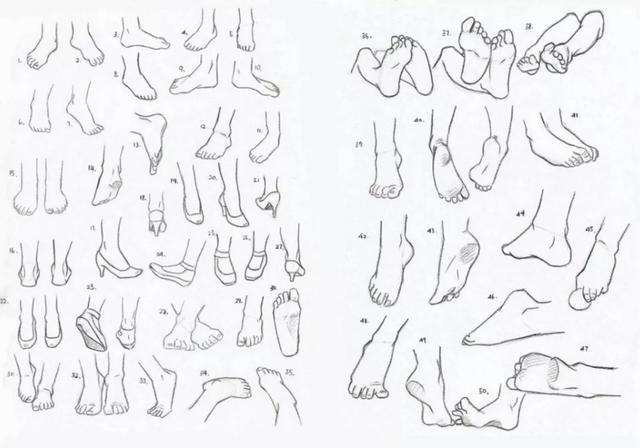 1. 2. 3. 4. 5.
8. 9. 10.
6. 7.
13. 12. 11.
15. 14. 18. 19. 20. 21.
16. 17. 24. 26. 27.
22. 23.
32. 33. 34. 35.
36. 37. 38.
39. 40. 41.
42. 43. 44. 45.
46. 47.
48. 49. 50.